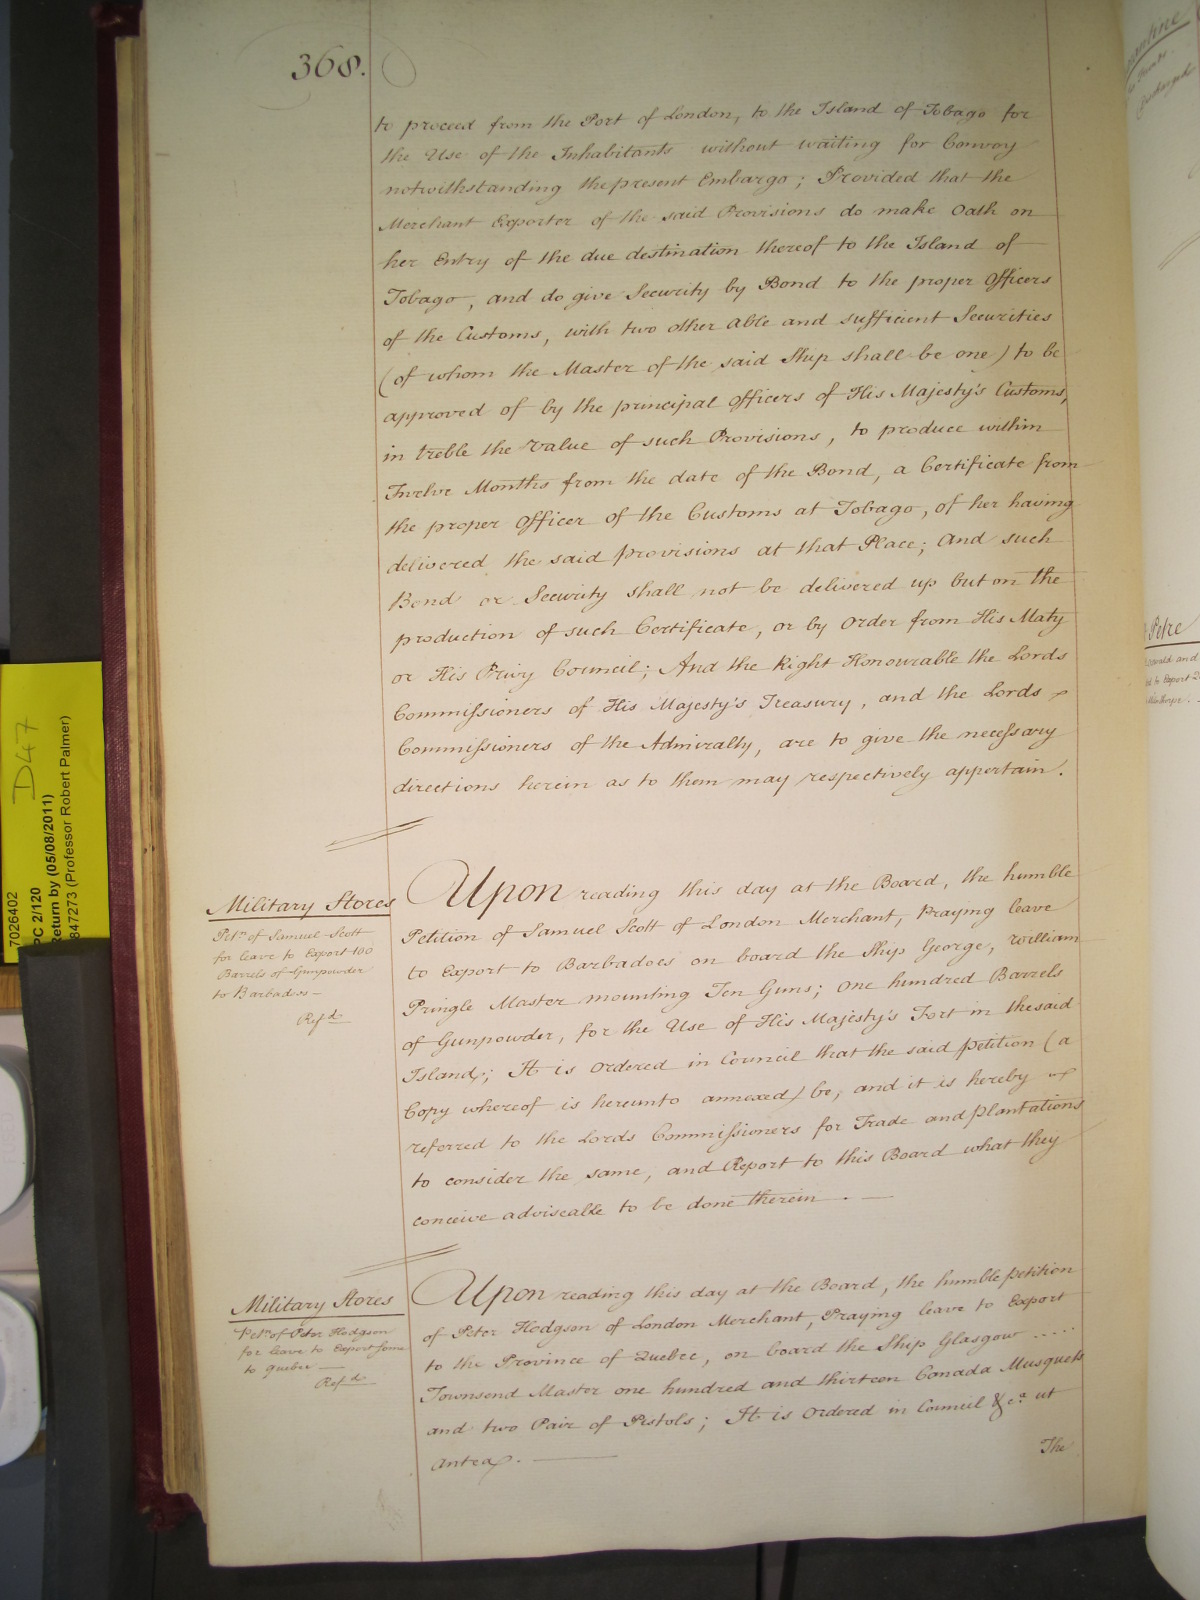 368.
to proceed from the Port of London, to the Island of Tobago for
the Use of the Inhabitants without waiting for Convoy
notwithstanding the present Embargo; Provided that the
Merchant Exporter of the said Provisions do make Oath on
her Entry of the due destination thereof to the Island of
Tobago, and do give Security by Bond to the proper Officers
of the Customs, with two other able and sufficient Securities
(of whom the Master of the said Ship shall be one) to be
approved of by the principal Officers of His Majesty's Customs,
in treble the Value of such Provisions, to produce within
Twelve Months from the date of the Bond, a Certificate from
the proper Officer of the Customs at Tobago, of her having
delivered the said provisions at that Place; And such
Bond or Security shall not be delivered up but on the
production of such Certificate, or by Order from His Maty
or His Privy Council; And the Right Honourable the Lords
Commissioners of His Majesty's Treasury, and the Lords
Commissioners of the Admiralty, are to give the necessary
directions herein as to them may respectively appertain.
Military Stores
Petn. of Samuel Scott
for leave to Export 100
Barrels of Gunpowder
to Barbados
Refd.
Upon reading this day at the Board, the humble
Petition of Samuel Scott of London Merchant, Praying leave
to Export to Barbadoes on board the Ship George, William
Pringle Master mounting Ten Guns; One hundred Barrels
of Gunpowder, for the Use of His Majesty's Fort in the said
Island; It is Ordered in Council that the said petition (a
Copy whereof is hereunto annexed) be, and it is hereby
referred to the Lords Commissioners for Trade and plantations
to consider the same, and Report to this Board what they
conceive adviseable to be done therein.
Military Stores
Petn. of Peter Hodgson
for leave to Export some
to Quebec
Refd.
Upon reading this day at the Board, the humble petition
of Peter Hodgson of London Merchant, Praying leave to Export
to the Province of Quebec, on board the Ship Glasgow .....
Townsend Master one hundred and thirteen Canada Musquets
and two Pair of Pistols; It is Ordered in Council &ca. ut
antea.
The
D47
7026402
PC 2/120
Return by (05/08/2011)
847273 (Professor Robert Palmer)
Petre